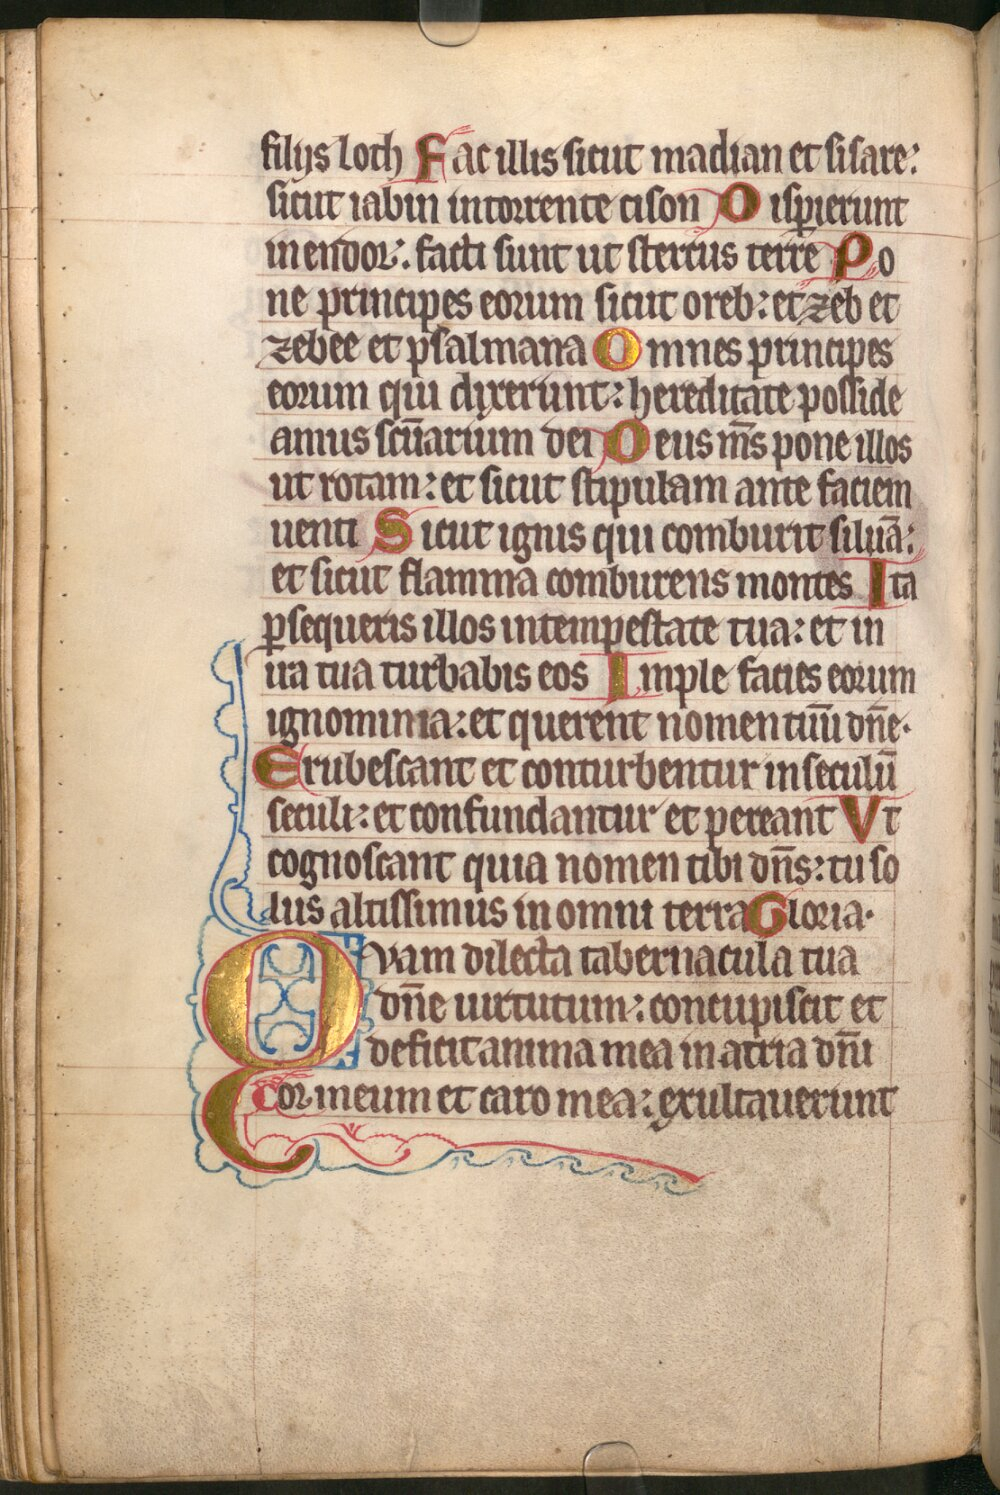 filijs loth Fac illis sicut madian et sisare:
sicut iabin in torrente cison Disperierunt
in endor: facti sunt ut stercus terre Po
ne principes eorum sicut oreb: et zeb et
zebee et psalmana Omnes principes
eorum qui dixerunt: hereditate posside
amus scūarium dei Deus m̄s pone illos
ut rotam: et sicut stipulam ante faciem
uenti Sicut ignis qui comburit siluā:
et sicut flamma comburens montes Ita
ꝑsequeris illos in tempestate tua: et in
ira tua turbabis eos Imple facies eorum
ignominia: et querent nomen tuū dn̄e.
Erubescant et conturbentur in seculū
seculi: et confundantur et pereant Vt
cognoscant quia nomen tibi dn̄s: tu so
lus altissimus in omni terra Gloria.
Quam dilecta tabernacula tua
dn̄e uirtutum: concupiscit et
deficit anima mea in atria dn̄i
Cor meum et caro mea: exultauerunt